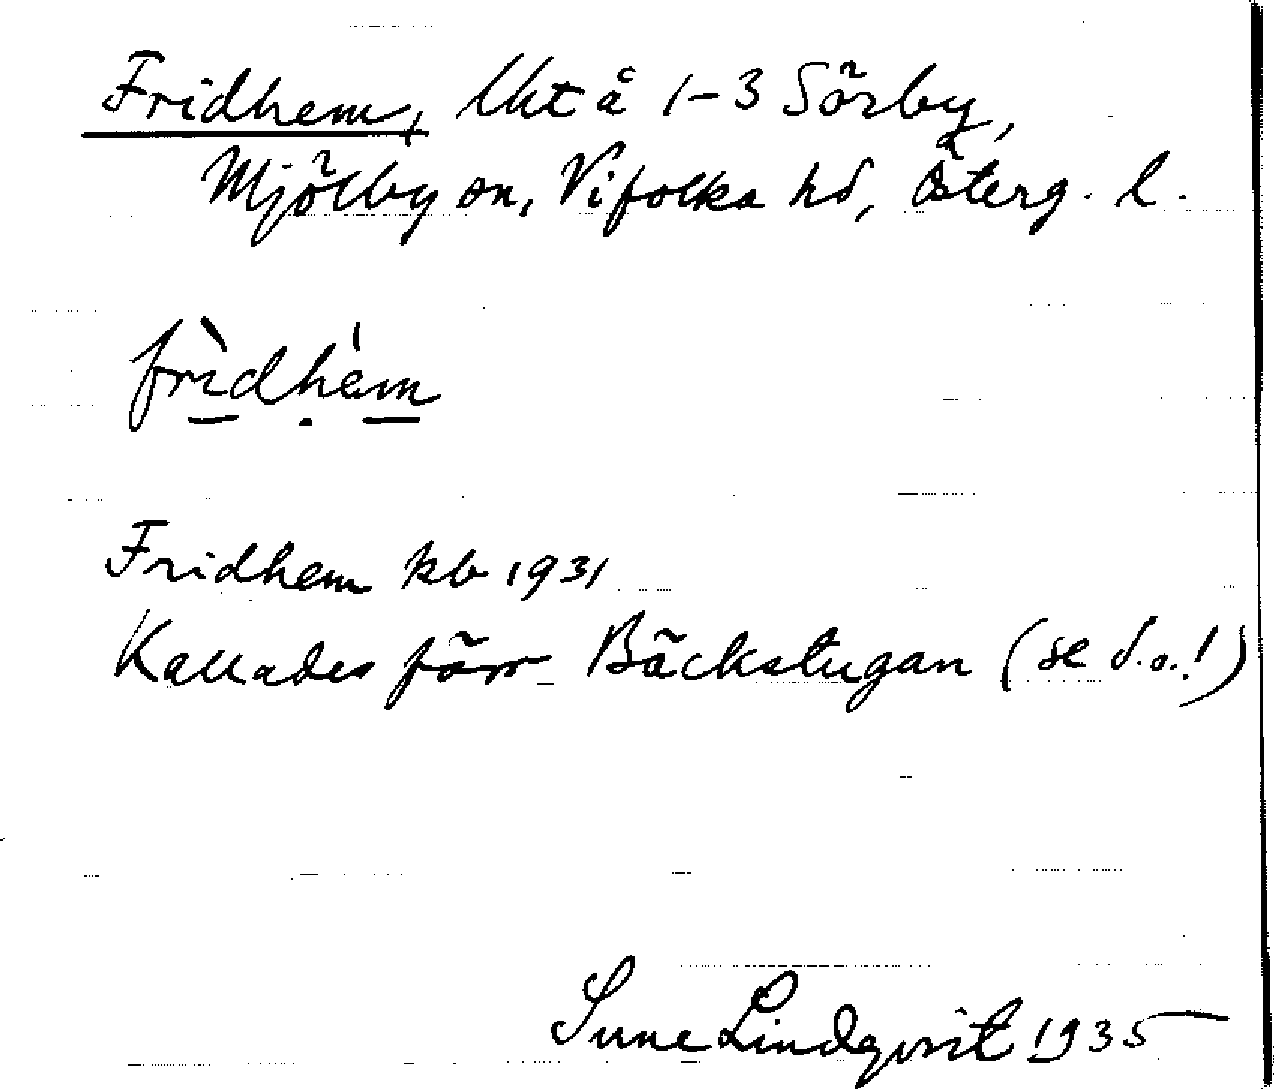 Fridhem, lht å 1-3 Sörby,
Mjölby sn, Vifolka hd, Österg. l.
frìdhém
Fridhem kb 1931
Kallades förr Bäckstugan (se d.o.!)
Sune Lindqvist 1935